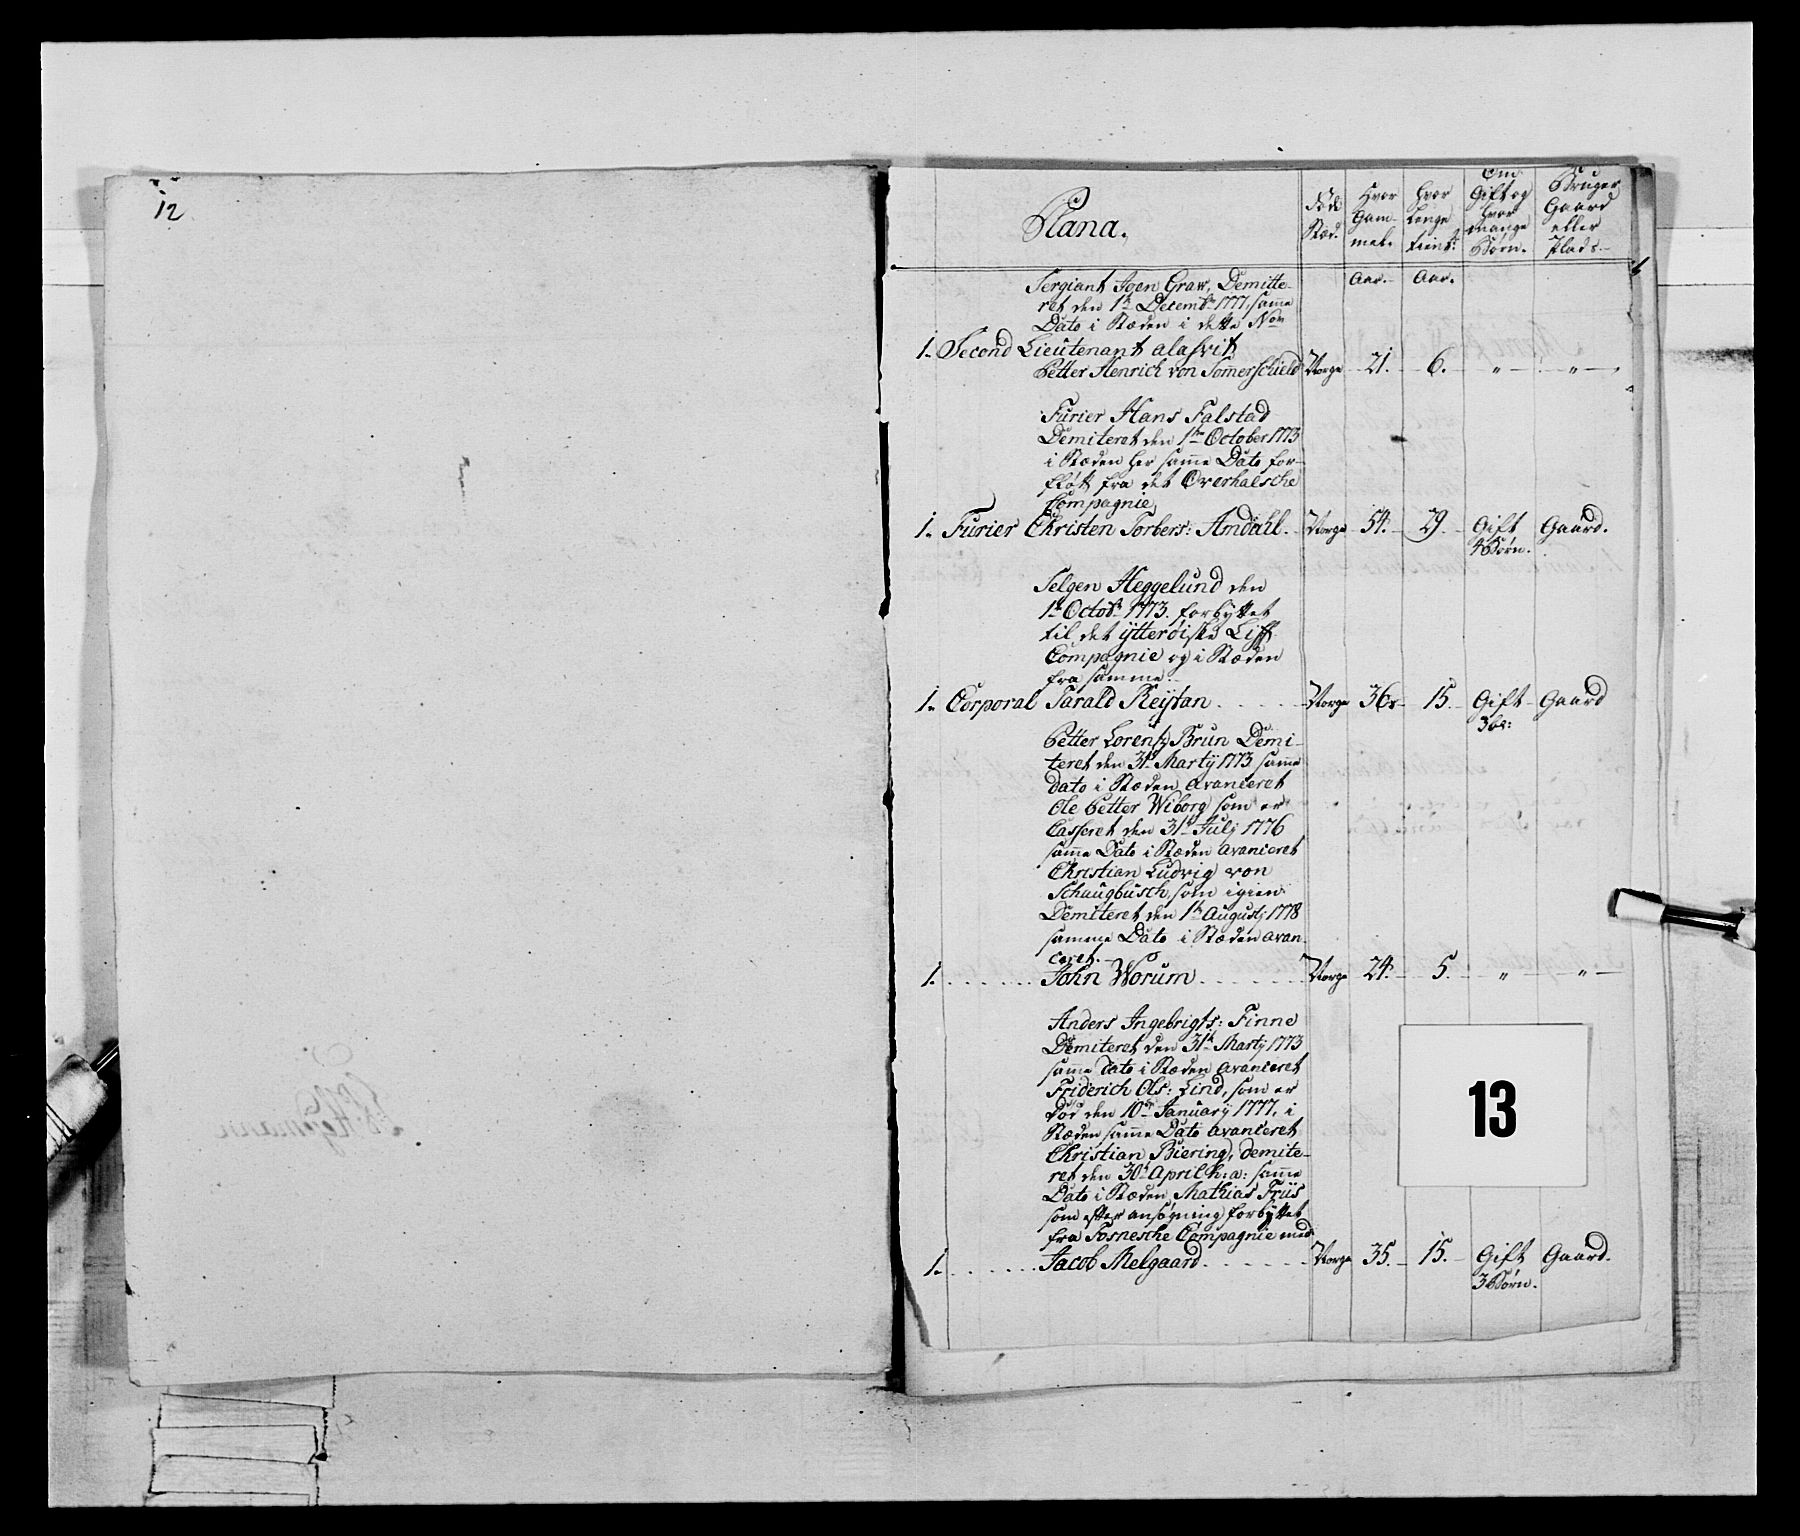 12
Plana.
Føde
Stæd.
Hvor
Gam-
mel.
Hvor
lenge
tient:
Om
Gift og
hvor
mange
Børn.
Bruger
Gaard
eller
Plads.
Aar. Aar.
Sergiant Joen Graw, Demitte-
ret den 1te Decembr 1771, samme
Dato i Stæden i dette No
1. Second Lieutenant alasvit
Petter Henrich von Somerschield Norge 21. 6. " "
Furier Hans Falstad
Demiteret den 1te October 1773
i Stæden her samme Dato for-
fløt fra det Overhalsche
Compagnie,
1. Furier Christen Torbers: Amdahl. Norge 54. 29. Gift Gaard.
4 Børn.
Selgen Heggelund den
1te Octobr 1773. forbyttet
til det ytterøiske Liff
Compagnie og i Stæden
fra samme:
1. Corporal Tarald Reistan Norge 36 15. Gift Gaard
3 br:
Petter Lorentz Brun Demi-
teret den 31te Martij 1773 samme
dato i Stæden avanceret
Ole Petter Wiborg som er
Casseret den 31te Julj 1776
samme Dato i Stæden avanceret
Christian Ludvig von
Schaugbusch, som igien
Demiteret den 1te Augustj 1778
samme Dato i Stæden avan-
ceret.
1. John Worum Norge 24. 5. " "
Anders Ingebrigts: Finne
Demiteret den 31te Martij 1773
samme dato i Stæden avanceret
Friderich Ols: Lind, som er
død den 10de January 1777, i
Stæden samme Dato avanceret
Christian Biering, demite-
ret den 30te April h: a: samme
Dato i Stæden Mathias Friis
som efter ansøgning forbyttet
fra Fosnesche Compagnie med
1. Jacob Melgaard Norge 35. 15. Gift Gaard.
3 Børn.
13